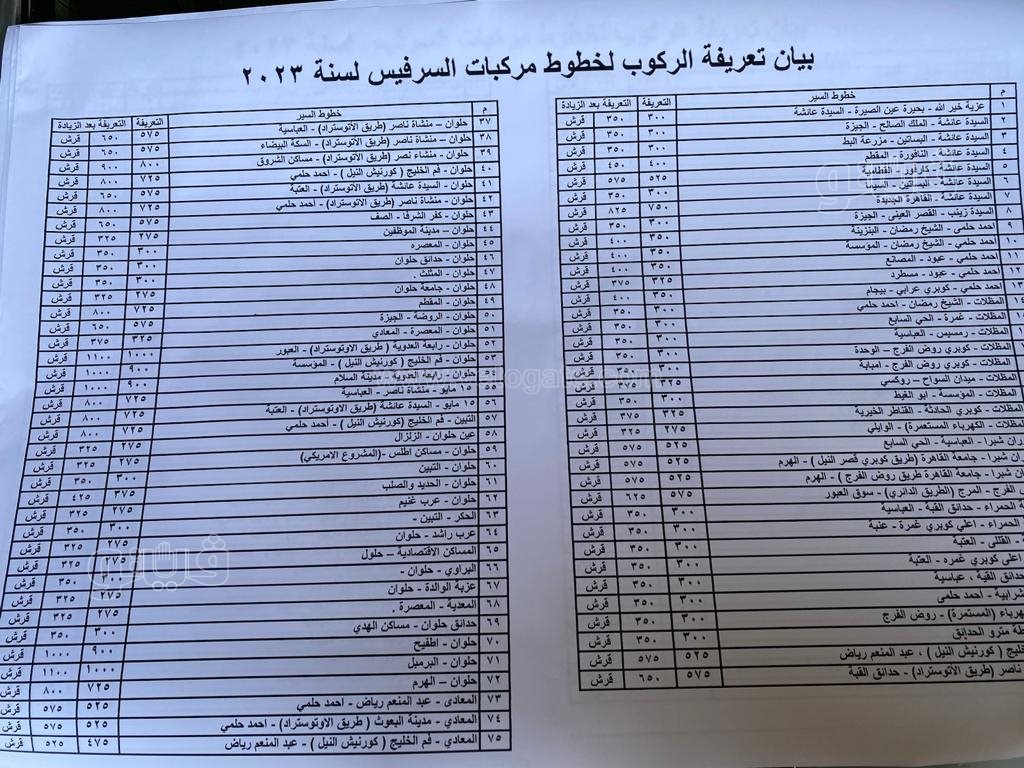 بيان تعريفة الركوب لخطوط مركبات السرفيس لسنة ٢٠٢٣
م خطوط السير التعريفة التعريفة بعد الزيادة
١ عزبة خير الله - بحيرة عين الصيرة - السيدة عائشة ٣٠٠ ٣٥٠ قرش
٢ السيدة عائشة - الملك الصالح - الجيزة ٣٠٠ ٣٥٠ قرش
٣ السيدة عائشة - البساتين - مزرعة البط ٣٠٠ ٣٥٠ قرش
٤ السيدة عائشة - النافورة - المقطم ٤٠٠ ٤٥٠ قرش
٥ السيدة عائشة - كارفور - القطامية ٥٢٥ ٥٧٥ قرش
٦ السيدة عائشة - البساتين - السينما ٣٠٠ ٣٥٠ قرش
٧ السيدة عائشة - القاهرة الجديدة ٧٥٠ ٨٢٥ قرش
٨ السيدة زينب - القصر العينى - الجيزة ٣٠٠ ٣٥٠ قرش
٩ احمد حلمي - الشيخ رمضان - البنزينة ٣٥٠ ٤٠٠ قرش
١٠ احمد حلمي - الشيخ رمضان - المؤسسة ٣٠٠ ٣٥٠ قرش
١١ احمد حلمي - عبود - المصانع ٣٥٠ ٤٠٠ قرش
١٢ احمد حلمي - عبود - مسطرد ٣٢٥ ٣٧٥ قرش
١٣ احمد حلمي - كوبري عرابي - بيجام ٣٥٠ ٤٠٠ قرش
المظلات - الشيخ رمضان - احمد حلمي ٣٠٠ ٣٥٠ قرش
المظلات - غمرة - الحي السابع ٣٠٠ ٣٥٠ قرش
المظلات - رمسيس - العباسية ٣٠٠ ٣٥٠ قرش
المظلات - كوبري روض الفرج - الوحدة
المظلات - كوبري روض الفرج - امبابة
المظلات - ميدان السواح - روكسي
المظلات - المؤسسة - ابو الغيط
المظلات - كوبري الحادثة - القناطر الخيرية
المظلات - الكهرباء المستعمرة) - الوايلي ٢٧٥ ٣٢٥ قرش
ران شبرا - العباسية - الحي السابع ٥٢٥ ٥٧٥ قرش
ران شبرا - جامعة القاهرة (طريق كوبري قصر النيل ) - الهرم ٥٢٥ ٥٧٥ قرش
ان شبرا - جامعة القاهرة طريق روض الفرج ) - الهرم ٥٢٥ ٥٧٥ قرش
الفرج - المرج (الطريق الدائري) - سوق العبور ٥٧٥ ٦٢٥ قرش
ة الحمراء - حدائق القبة - العباسية ٣٠٠ ٣٥٠ قرش
ة الحمراء - اعلي كوبري غمرة - عتبة ٣٠٠ ٣٥٠ قرش
- القللى - العتبة ٣٠٠ ٣٥٠ قرش
اعلى كوبري غمره - العتبة ٣٠٠ ٣٥٠ قرش
حدائق القبة ، عباسية ٣٠٠ ٣٥٠ قرش
شرابية - أحمد حلمى ٣٠٠ ٣٥٠ قرش
هرباء (المستعمرة) - روض الفرج ٣٠٠ ٣٥٠ قرش
طة مترو الحدائق ٣٠٠ ٣٥٠ قرش
خليج ( كورنيش النيل ) ، عبد المنعم رياض ٥٢٥ ٥٧٥ قرش
ناصر (طريق الأتوستراد) - حدائق القبة ٥٧٥ ٦٥٠ قرش
م خطوط السير التعريفة التعريفة بعد الزيادة
٣٧ حلوان - منشاة ناصر (طريق الأتوستراد) - العباسية ٥٧٥ ٦٥٠ قرش
٣٨ حلوان – منشاة ناصر (طريق الأتوستراد) - السكة البيضاء ٥٧٥ ٦٥٠ قرش
٣٩ حلوان - منشاء نصر (طريق الأتوستراد) - مساكن الشروق ٨٠٠ ٩٠٠ قرش
٤٠ حلوان - فم الخليج ( كورنيش النيل ) - احمد حلمي ٧٢٥ ٨٠٠ قرش
٤١ حلوان - السيدة عائشة (طريق الأتوستراد) - العتبة ٥٧٥ ٦٥٠ قرش
٤٢ حلوان - منشاة ناصر (طريق الأتوستراد) - أحمد حلمي ٧٢٥ ٨٠٠ قرش
٤٣ حلوان - كفر الشرفا - الصف ٥٧٥ ٦٥٠ قرش
٤٤ حلوان - مدينة الموظفين ٢٧٥ ٣٢٥ قرش
٤٥ حلوان - المعصره ٣٠٠ ٣٥٠ قرش
٤٦ حلوان - حدائق حلوان ٣٠٠ ٣٥٠ قرش
٤٧ حلوان - المثلث . ٣٠٠ ٣٥٠ قرش
٤٨ حلوان - جامعة حلوان ٢٧٥ ٣٢٥ قرش
٤٩ حلوان - المقطم ٧٢٥ ٨٠٠ قرش
٥٠ حلوان - الروضة - الجيزة ٥٧٥ ٦٥٠ قرش
٥١ حلوان - المعصرة - المعادي ٣٢٥ ٣٧٥ قرش
٥٢ حلوان - رابعة العدوية ( طريق الاوتوستراد) - العبور ١٠٠٠ ١١٠٠ قرش
٥٣ حلوان - فم الخليج ( كورنيش النيل ) - المؤسسة ٩٠٠ ١٠٠٠ قرش
٥٤ حلوان - رابعة العدوية - مدينة السلام ٩٠٠ ١٠٠٠ قرش
٥٥ ١٥ مايو - منشاة ناصر - العباسية
٥٦ ١٥ مايو - السيدة عائشة (طريق الأتوستراد) - العتبة
٥٧ التبين - فم الخليج (كورنيش النيل ) - احمد حلمي ٧٢٥ ٨٠٠ قرش
٥٨ عين حلوان - الزلزال ٢٧٥ ٣٢٥ قرش
٥٩ حلوان - مساكن اطلس -(المشروع الامريكي) ٢٧٥ ٣٢٥ قرش
٦٠ حلوان - التبين ٣٠٠ ٣٥٠ قرش
٦١ حلوان - الحديد والصلب ٣٧٥ ٤٢٥ قرش
٦٢ حلوان - عرب غنيم ٣٠٠ ٣٥٠ قرش
٦٣ الحكر - التبين - ٢٧٥ ٣٢٥ قرش
٦٤ عرب راشد - حلوان ٢٧٥ قرش
٦٥ المساكن الاقتصادية – حلول ٣٠٠ ٣٥٠ قرش
٦٦ البراوي - حلوان - ٢٧٥ ٣٢٥ قرش
٦٧ عزبة الوالدة - حلوان ٢٧٥ ٣٢٥ قرش
٦٨ المعدية - المعصرة .
٦٩ حدائق حلوان - مساكن الهدي ٣٠٠ ٣٥٠ قرش
٧٠ حلوان - اطفيح ٩٠٠ ١٠٠٠ قرش
٧١ حلوان - البرمبل ١٠٠٠ ١١٠٠ قرش
٧٢ حلوان – الهرم ٧٢٥ ٨٠٠ قرش
٧٣ المعادى - عبد المنعم رياض - احمد حلمي ٥٢٥ ٥٧٥ قرش
٧٤ المعادي - مدينة البعوث ( طريق الاوتوستراد) - احمد حلمي ٥٢٥ ٥٧٥ قرش
٧٥ المعادي - فم الخليج ( كورنيش النيل ) - عبد المنعم رياض ٤٧٥ ٥٢٥ قرش